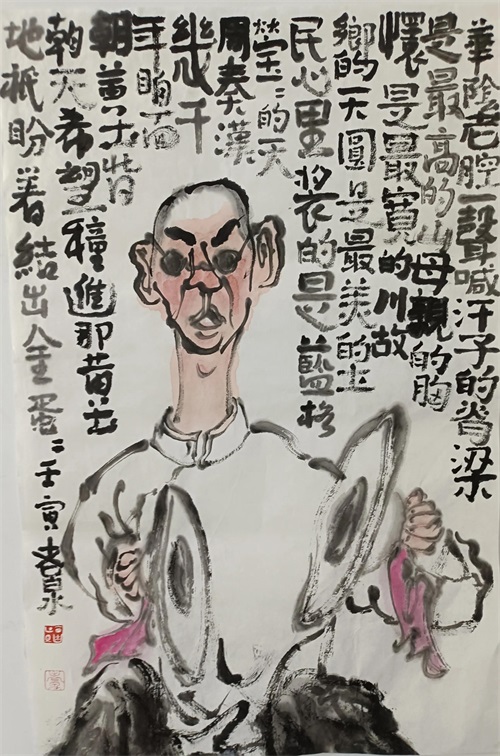 華陰老腔一聲喊汗子的脊梁
是最高的山母親的胸
懷是最寬的川故
鄉的天圓是最美的土
民心里裝的是藍格
瑩〻的天
周秦漢
幾千
年晌面
朝黃土背
朝天希望種進那黃土
地祇盼着結出金蛋〻壬寅